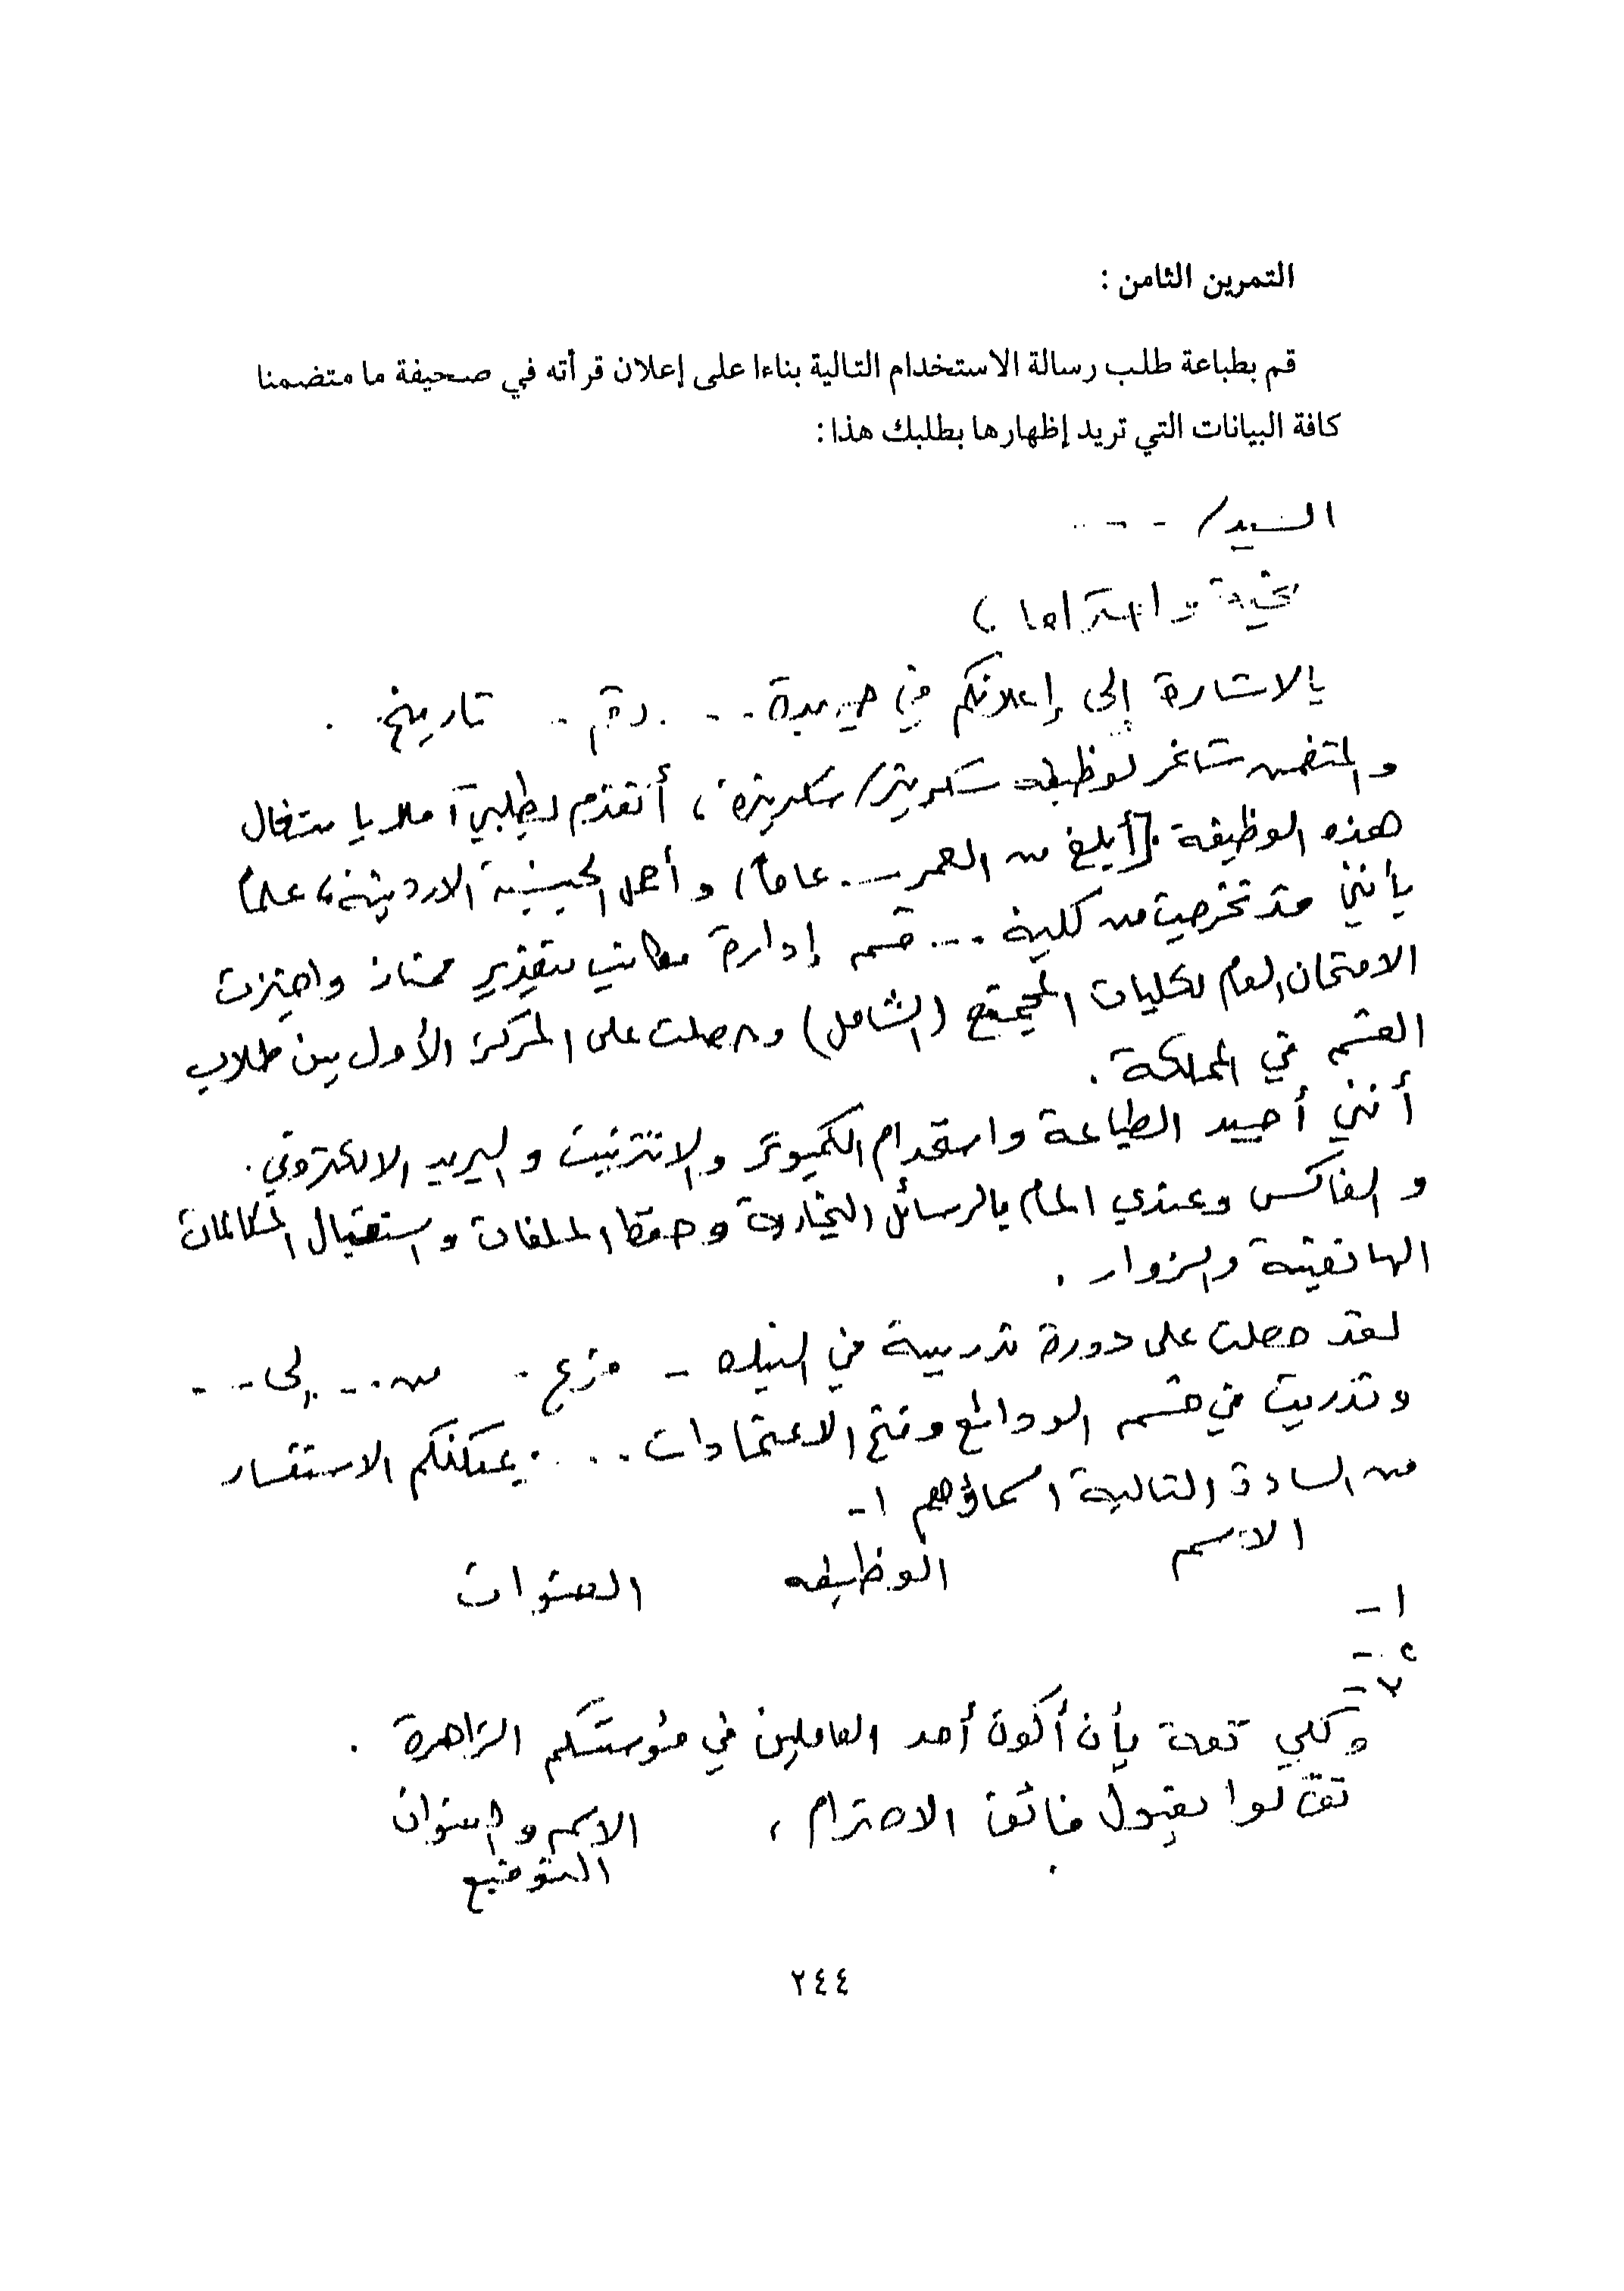 التمرين الثامن :
قم بطباعة طلب رسالة الاستخدام التالية بناءا على إعلان قرأته في صحيفة ما متضمنا
كافة البيانات التي تريد إظهارها بطلبك هذا :
السيد / - - - -
تحية واحتراما ،
بالاشارة إلى إعلانكم في جريدة . . - - رقم - . تاريخ .
والمتضمن شاغر لوظيفه سكرتير / سكرتيرة ، أتقدم بطلبي آملا بإشغال
هذه الوظيفة . [أبلغ من العمر - . عاماً ) وأحمل الجنسية الاردنية ، علماً
بأنني قد تخرجت من كلية . . . - قسم إدارة مكاتب بتقدير ممتاز واجتزت
الامتحان العام لكليات المجتمع (الشامل) وحصلت على المركز الأول بين طلاب
القسم في المملكة .
أنني أجيد الطباعة واستخدام الكمبيوتر والانترنيت والبريد الالكتروني .
والفاكس وعندي المام بالرسائل التجارية وحفظ الملفات واستقبال المكالمات
الهاتفية والزوار .
لقد حصلت على دورة تدريبية في البنك - فرع - من . - - إلى - - -
وتدربت في قسم الودائع وفتح الاعتمادات . . . . يمكنكم الاستفسار
من السادة التالية اسماؤهم :-
الاسم الوظيفه العنوان
١ -
٢ -
٣ -
وكلي ثقة بأن أكون أحد العاملين في مؤسستكم الزاهرة .
تفضلوا بقبول فائق الاحترام ، الاسم والعنوان
التوقيع
٢٤٤